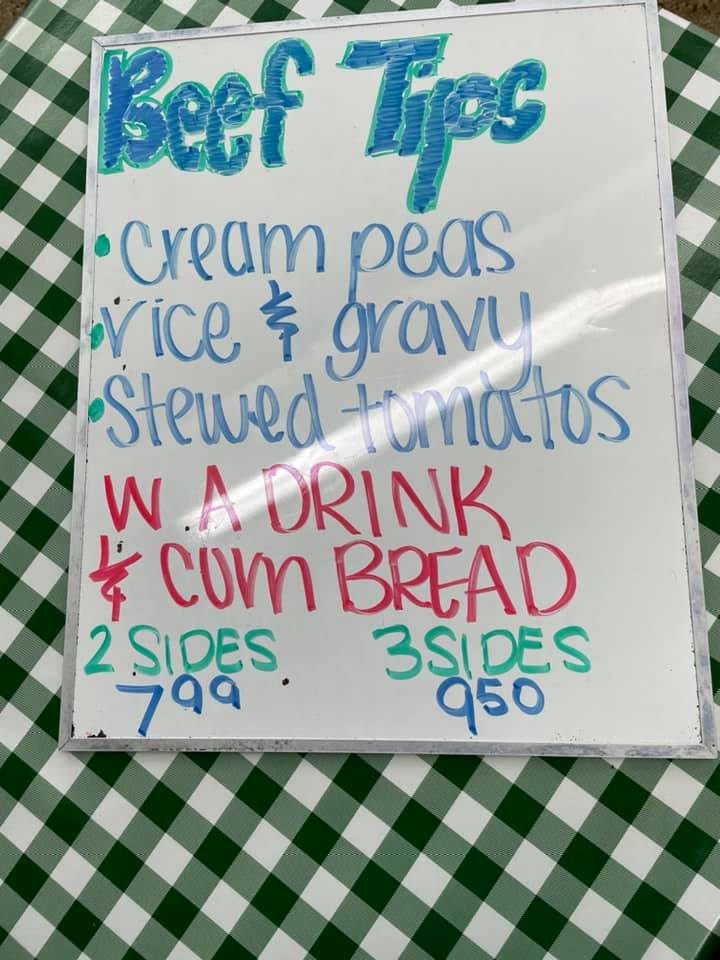 Beef Tips
• Cream peas
• rice & gravy
• Stewed tomatos
W A DRINK
& CUM BREAD
2 SIDES 3 SIDES
799 950